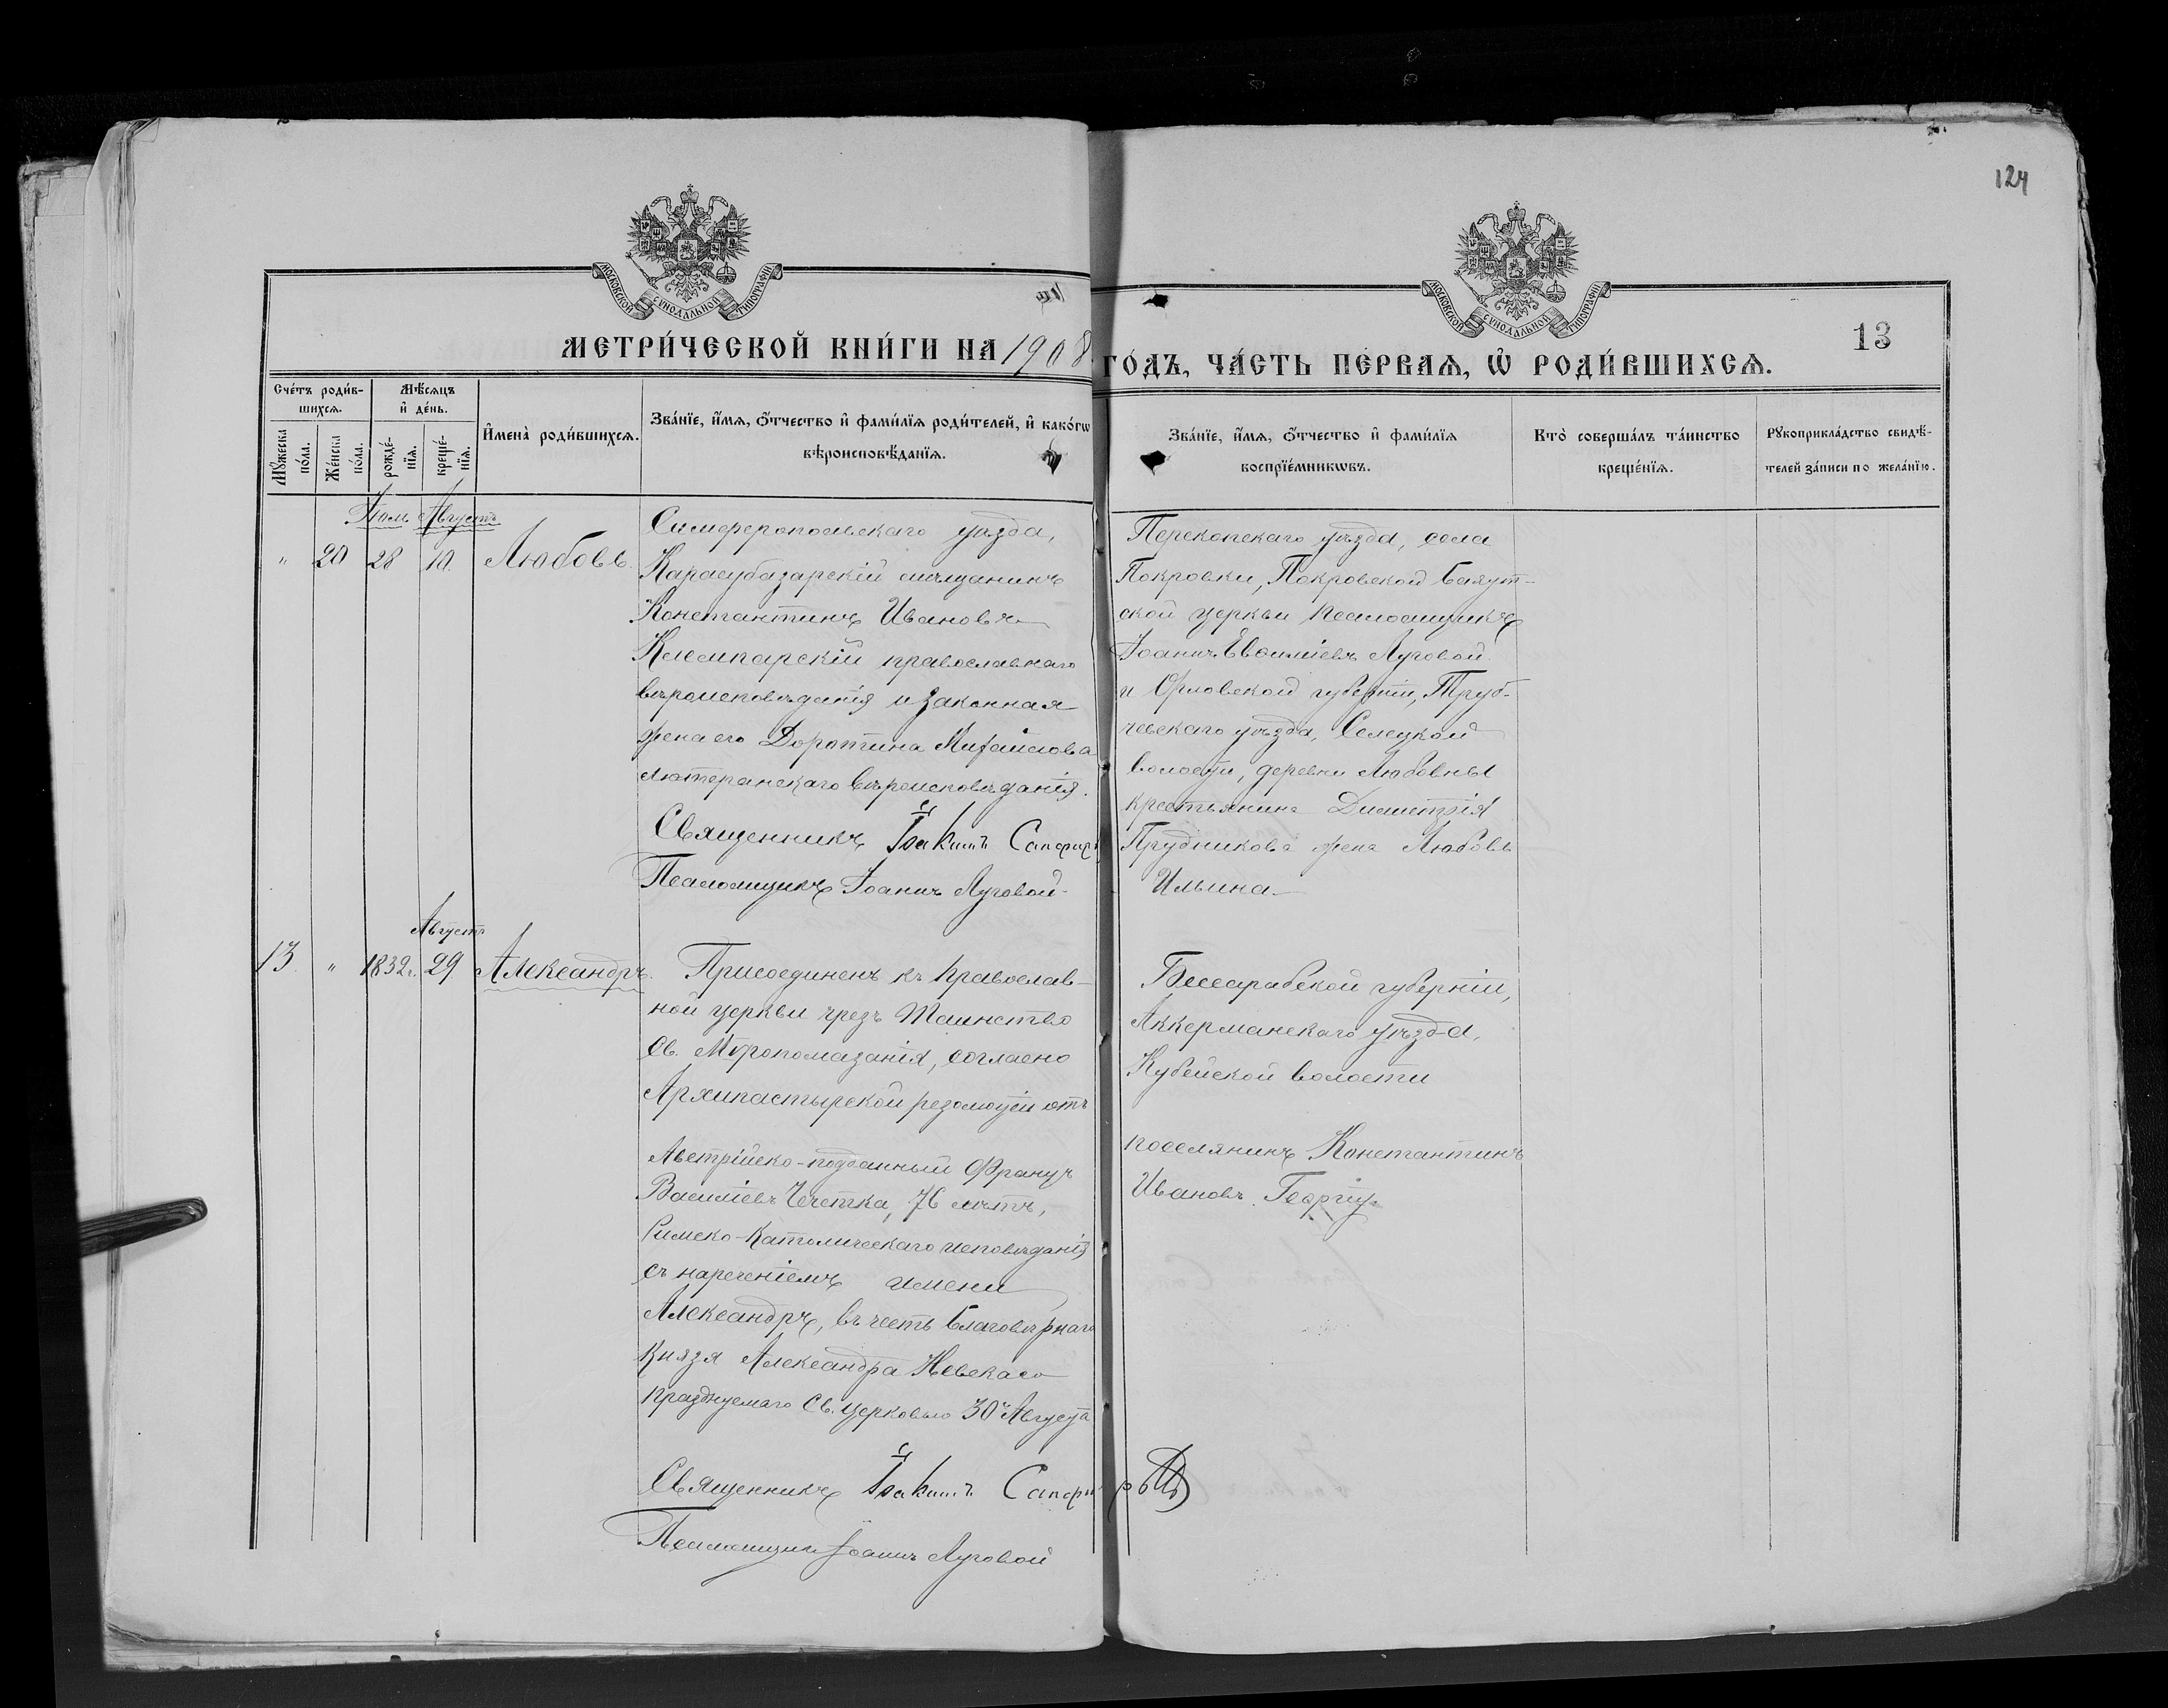 124
МОСКОВСКОЙ СѴНОДАЛЬНОЙ ТИПОГРАФІИ
МОСКОВСКОЙ СѴНОДАЛЬНОЙ ТИПОГРАФІИ
13
МЕТРИ́ЧЕСКОЙ КНИ́ГИ НА 1908
ГО́ДЪ, ЧА́СТЬ ПЕ́РВАѦ, Ѡ҆ РОДИ́ВШИХСѦ.
Сче́тъ роди́в-
шихсѧ.
Мѣ́сяцъ
и҆ де́нь.
Мꙋ́жеска
по́ла.
Же́нска
по́ла.
рожде́-
нїѧ.
креще́-
нїѧ.
И҆мена̀ роди́вшихсѧ.
Зва́нїе, и҆́мѧ, ѻ҆́тчество и҆ фами́лїѧ роди́телей, и҆ како́гѡ
вѣроисповѣ́данїѧ.
Зва́нїе, и҆́мѧ, ѻ҆́тчество и҆ фами́лїѧ
воспрїе́мникѡвъ.
Кто̀ соверша́лъ та́инство
креще́нїѧ.
Рꙋкоприкла́дство свидѣ́-
телей за́писи по жела́нїю.
Іюль Августъ
" 20 28 10. Любовь.
Симферопольскаго уѣзда,
Карасубазарскій мѣщанинъ
Константинъ Ивановъ
православнаго
вѣроисповѣданія и законная
жена его Доротина Михайлова
лютеранскаго вѣроисповѣданія.
Священникъ Іоакимъ Сапфир
Псаломщикъ Іоаннъ Луговой
Перекопскаго уѣзда, села
Покровки, Покровской Баяут-
ской церкви псаломщикъ
Іоаннъ Евѳиміевъ Луговой
и Орловской губерніи, Труб-
чевскаго уѣзда, Селецкой
волости, деревни Любовны
крестьянина Димитрія
Прудникова жена Любовь
Ильина
Августъ
13. " 1832г. 29 Александръ.
Присоединенъ къ православ-
ной церкви чрезъ Таинство
Св. Мѵропомазанія, согласно
Архипастырской резолюціи отъ
Австрійско-подданный Францъ
Василіевъ Чечетка, 76 лѣтъ,
Римско-Католическаго исповѣданія
съ нареченіемъ имени
Александръ, въ честь благовѣрнаго
Князя Александра Невскаго
празднуемаго Св. Церковью 30го Августа
Священникъ Іоакимъ Сапфировъ
Псаломщикъ Іоаннъ Луговой
Бессарабской губерніи,
Аккерманскаго уѣзда,
Кубейской волости
поселянинъ Константинъ
Ивановъ Георгіу